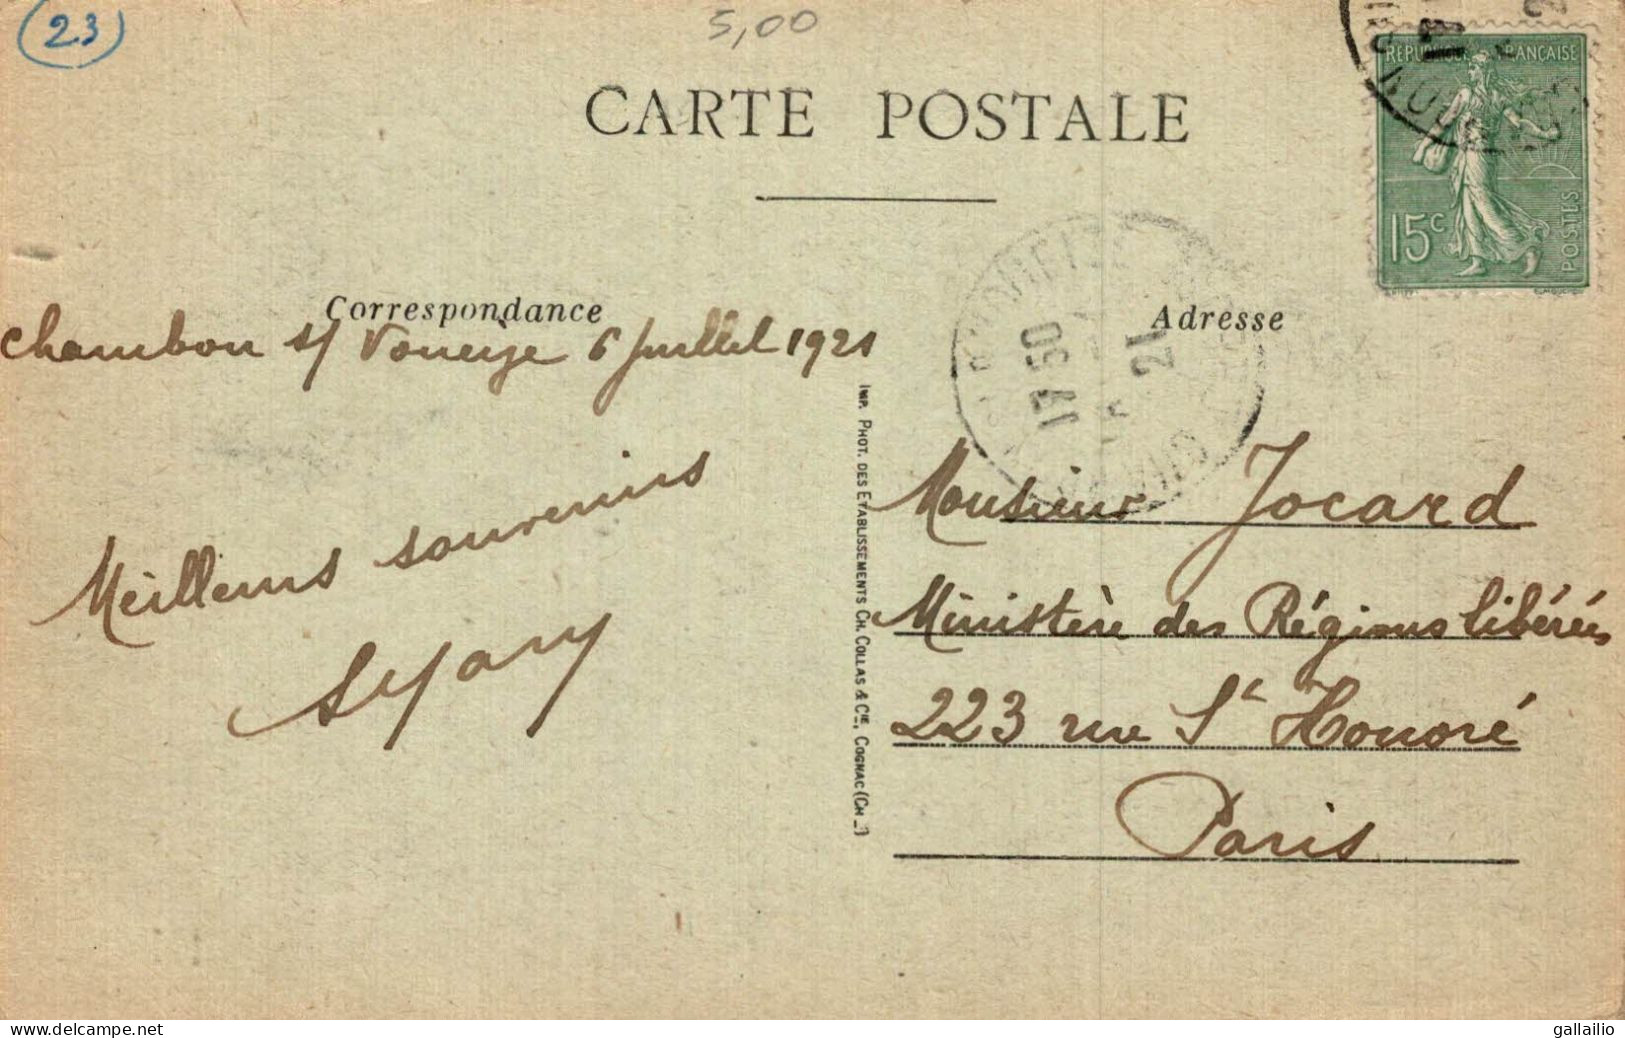 (23)
5,00
CARTE POSTALE
REPUBLIQUE FRANÇAISE
15c
POSTES
Correspondance
Adresse
Chambon s/ Voueize 6 Juillet 1921
17 30
21
Meilleurs souvenirs
IMP. PHOT. DES ETABLISSEMENTS CH. COLLAS & CIE, COGNAC (CH_)
Monsieur Jocard
Ministère des Régions libérées
223 rue St Honoré
Paris
https://www.delcampe.net
gallailio